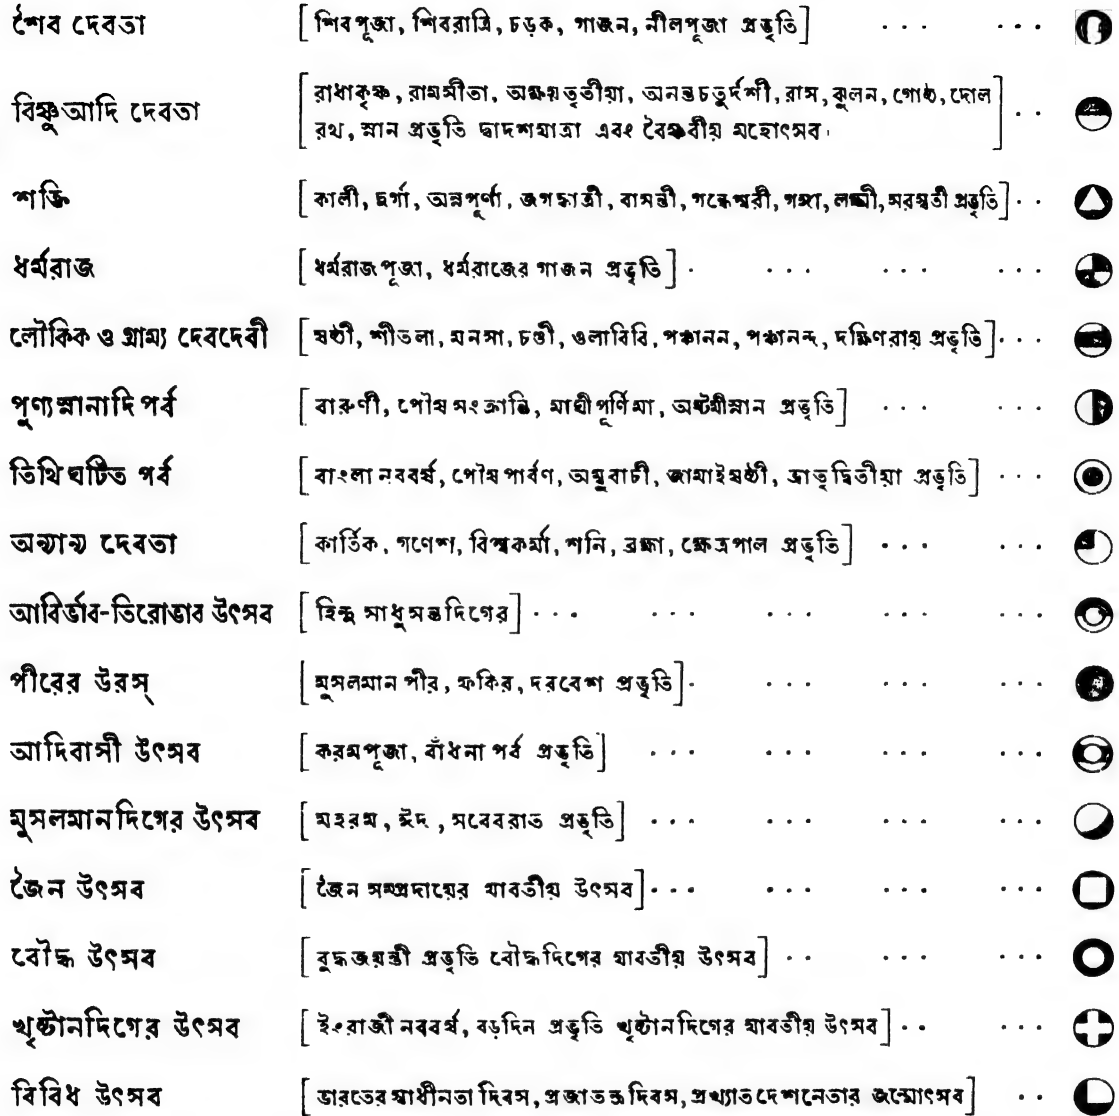 শৈব দেবতা [শিবপূজা, শিবরাত্রি, চড়ক, গাজন, নীলপূজা প্রভৃতি] ... ...
বিষ্ণুআদি দেবতা [রাধাকৃষ্ণ, রামসীতা, অক্ষয়তৃতীয়া, অনন্তচতুর্দশী, রাস, ঝুলন, গোষ্ঠ, দোল
রথ, স্নান প্রভৃতি দ্বাদশযাত্রা এবং বৈষ্ণবীয় মহোৎসব] ..
শক্তি [কালী, দুর্গা, অন্নপূর্ণা, জগদ্ধাত্রী, বাসন্তী, গন্ধেশ্বরী, গঙ্গা, লক্ষ্মী, সরস্বতী প্রভৃতি] ..
ধর্মরাজ [ধর্মরাজপূজা, ধর্মরাজের গাজন প্রভৃতি] . ... ... ...
লৌকিক ও গ্রাম্য দেবদেবী [ষষ্ঠী, শীতলা, মনসা, চণ্ডী, ওলাবিবি, পঞ্চানন, পঞ্চানন্দ, দক্ষিণরায় প্রভৃতি] ...
পুণ্যস্নানাদি পর্ব [বারুণী, পৌষ সংক্রান্তি, মাঘীপূর্ণিমা, অষ্টমীস্নান প্রভৃতি] ... ...
তিথি ঘটিত পর্ব [বাংলা নববর্ষ, পৌষ পার্বণ, অম্বুবাচী, জামাইষষ্ঠী, ভ্রাতৃদ্বিতীয়া প্রভৃতি] ...
অন্যান্য দেবতা [কার্তিক, গণেশ, বিশ্বকর্মা, শনি, ব্রহ্মা, ক্ষেত্রপাল প্রভৃতি] ... ...
আবির্ভাব-তিরোভাব উৎসব [হিন্দু সাধুসন্তদিগের] ... ... ... ...
পীরের উরস্ [মুসলমান পীর, ফকির, দরবেশ প্রভৃতি] . ... ... ...
আদিবাসী উৎসব [করমপূজা, বাঁধনা পর্ব প্রভৃতি] ... ... ... ...
মুসলমানদিগের উৎসব [মহরম, ঈদ, সবেবরাত প্রভৃতি] ... ... ... ...
জৈন উৎসব [জৈন সম্প্রদায়ের যাবতীয় উৎসব] ... ... ... ...
বৌদ্ধ উৎসব [বুদ্ধজয়ন্তী প্রভৃতি বৌদ্ধদিগের যাবতীয় উৎসব] .. ... ...
খৃষ্টানদিগের উৎসব [ইংরাজী নববর্ষ, বড়দিন প্রভৃতি খৃষ্টানদিগের যাবতীয় উৎসব] .. ...
বিবিধ উৎসব [ভারতের স্বাধীনতা দিবস, প্রজাতন্ত্র দিবস, প্রখ্যাত দেশনেতার জন্মোৎসব] ..